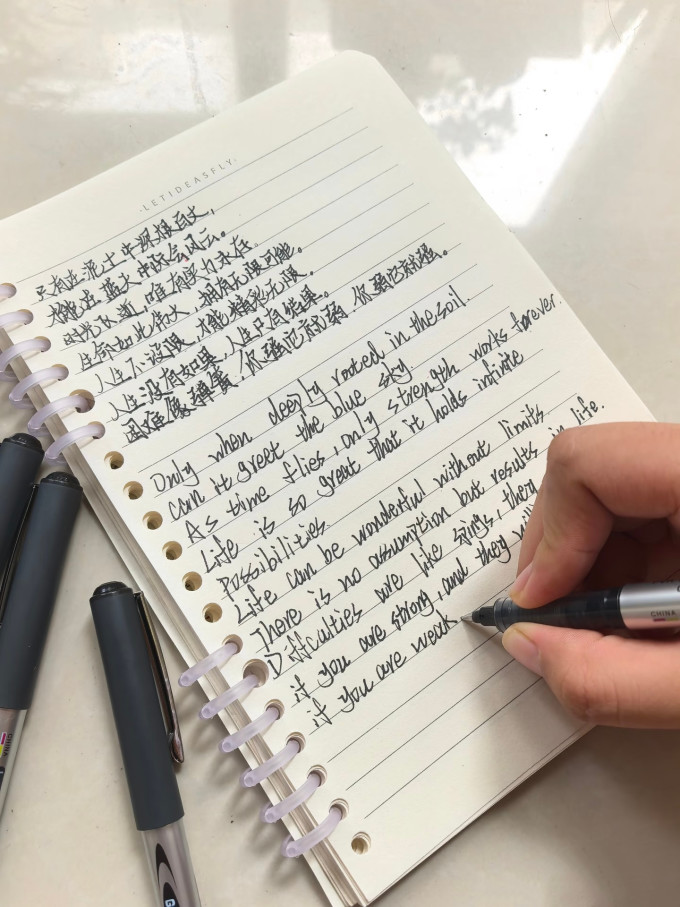 ·LETIDEASFLY·
只有在泥土中须根百丈，
才能在蓝天中际会风云。
时光飞逝，唯有实力永存。
生命如此伟大，拥有无限可能。
人生不设限，才能精彩无限。
人生没有如果，人生只有结果。
困难像弹簧，你强它就弱，你弱它就强。
Only when deeply rooted in the soil.
can it greet the blue sky.
As time flies, only strength works forever.
Life is so great that it holds infinite
possibilities.
Life can be wonderful without limits
There is no assumption but results in life.
Difficulties are like srings, they
if you are strong, and they will
if you are weak.
CHINA
CHINA
G